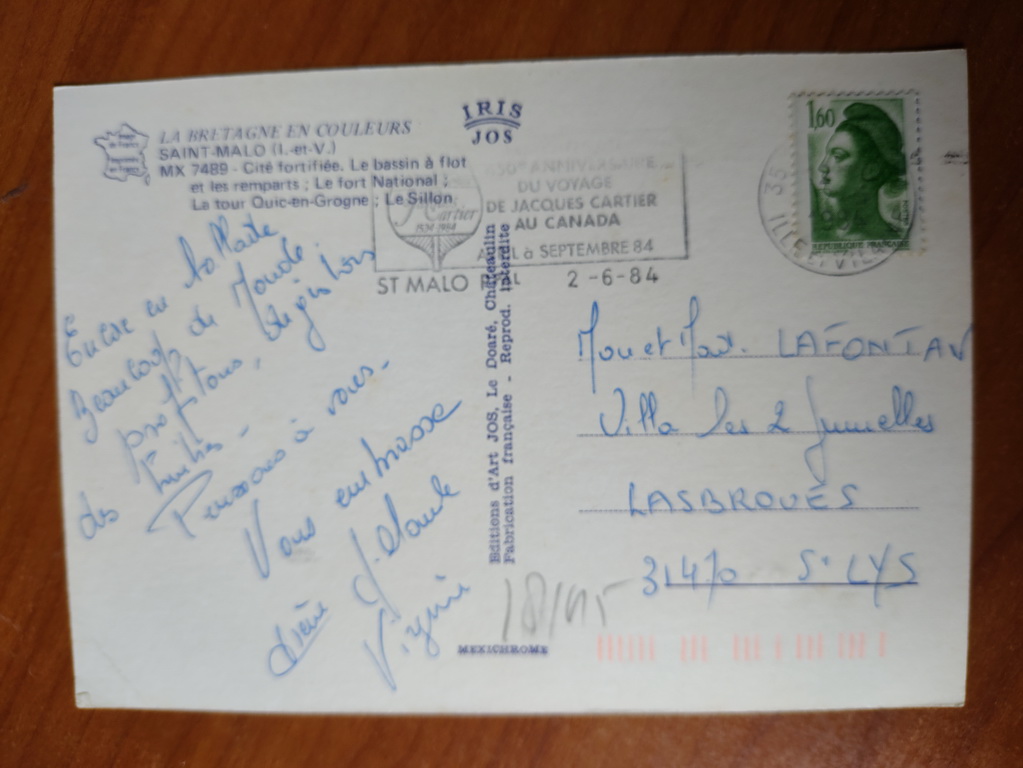 LA BRETAGNE EN COULEURS
SAINT-MALO (I.-et-V.)
MX 7489 - Cité fortifiée. Le bassin à flot
et les remparts ; Le fort National ;
La tour Quic-en-Grogne ; Le Sillon
IRIS
JOS
Cartier
1534-1984
450e ANNIVERSAIRE
DU VOYAGE
DE JACQUES CARTIER
AU CANADA
AVRIL à SEPTEMBRE 84
ST MALO
2 -6-84
1,60
REPUBLIQUE FRANÇAISE
35
Encore en
Beaucoup de Monde
profitons,
des
Pensons à vous.
Vous embrasse
J. Claude
Virginie
Editions d'Art JOS, Le Doaré, Châteaulin
Fabrication française - Reprod. Interdite
MEXICHROME
181195
LAFONTAN
Villa les 2 Jumelles
LASBROUES
31470 St LYS